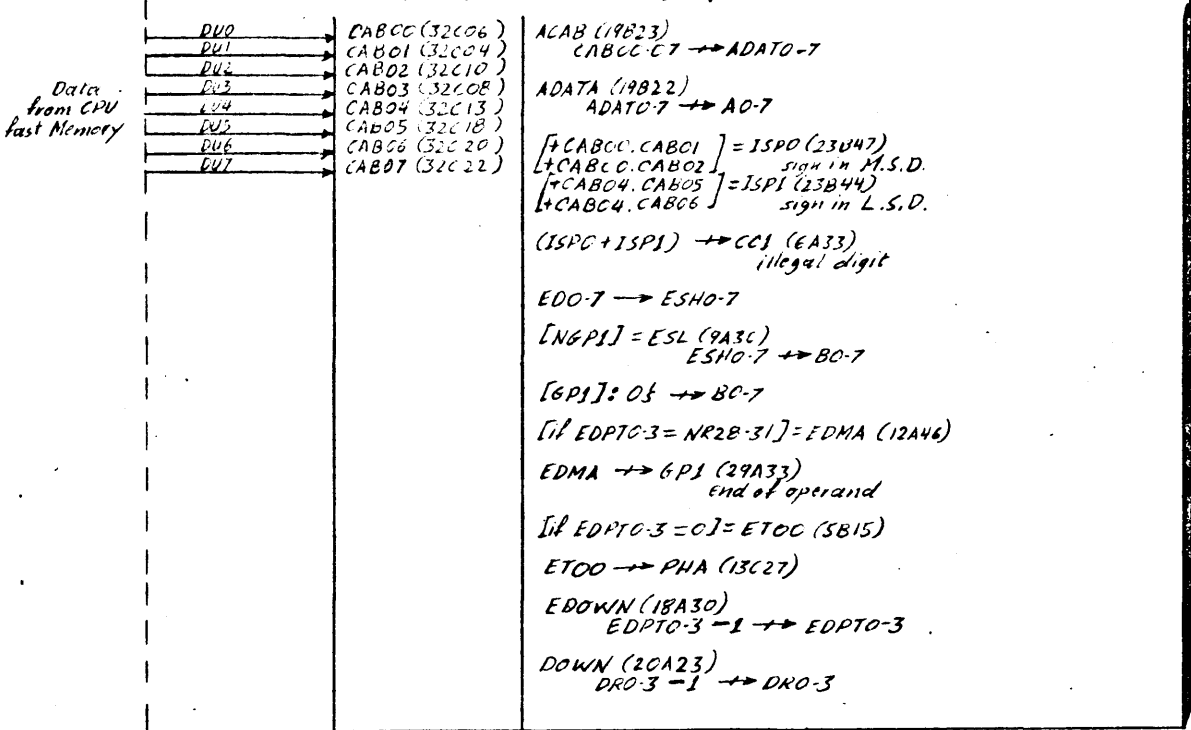 Data
from CPU
fast Memory
DU0
DU1
DU2
DU3
DU4
DU5
DU6
DU7
CAB00 (32C06)
CAB01 (32C04)
CAB02 (32C10)
CAB03 (32C08)
CAB04 (32C13)
CAB05 (32C18)
CAB06 (32C20)
CAB07 (32C22)
ACAB (19B23)
CAB00-07 ↛ ADAT0-7
ADATA (19B22)
ADAT0-7 ↛ A0-7
[+CAB00.CAB01
+CAB00.CAB02] = ISP0 (23B47)
sign in M.S.D.
[+CAB04.CAB05
+CAB04.CAB06] = ISP1 (23B44)
sign in L.S.D.
(ISP0 + ISP1) ↛ CC1 (6A33)
illegal digit
ED0-7 → ESH0-7
[NGP1] = ESL (9A36)
ESH0-7 ↛ B0-7
[GP1]: 0s ↛ B0-7
[if EDPT0-3 = NR28-31] = EDMA (12A46)
EDMA ↛ GP1 (29A33)
end of operand
[if EDPT0-3 = 0] = ET00 (5B15)
ET00 ↛ PHA (13C27)
EDOWN (18A30)
EDPT0-3 -1 ↛ EDPT0-3
DOWN (20A23)
DR0-3 -1 ↛ DR0-3